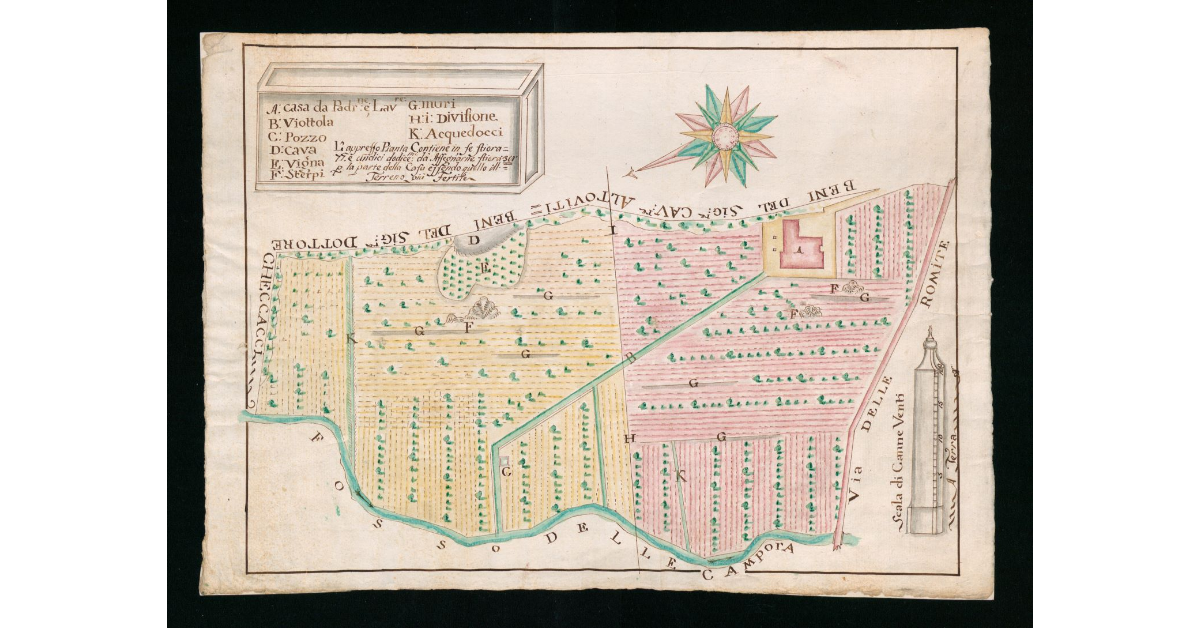 A. Casa da Padr.ne, e Lav.re
B. Viottola
C. Pozzo
D. Cava
E. Vigna
F. Sterpi
G. muri
H: i: Divisione.
K. Acquedocci
L'appresso Pianta Contiene in se stiora =
e undici dodice.mi da Assegnarne stiora
p la parte della Casa essendo quello ill =
Terreno più fertile
BENI DEL SIG.r DOTTORE
CHECCACCI
BENI DEL SIG.r CAV.re ALTOVITI =
D
E
I
A
G
F
G
G
K
F
G
B
G
H
G
K
C
Via DELLE ROMITE
FOSSO DELLE CAMPORA
Scala di Canne Venti
A Terra
5
10
15